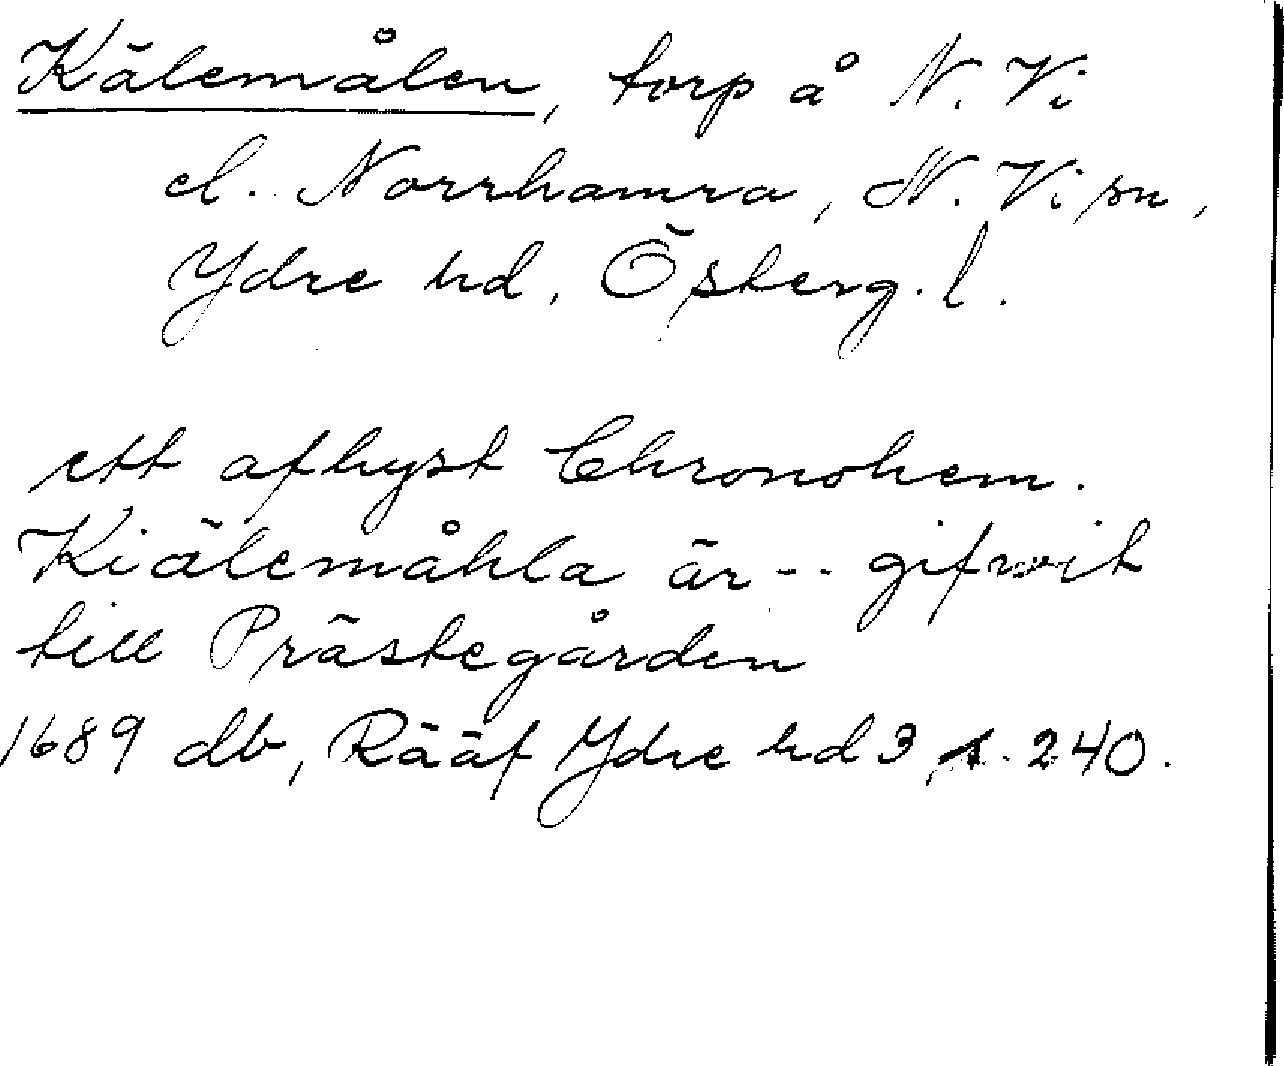 Kälemålen, torp å N. Vi
el. Norrhamra, N. Vi sn,
Ydre hd, Österg. l.
ett afhyst Chronohem.
Kiälemåhla är -- gifwit
till Prästegården
1689 db, Rääf Ydre hd 3, s. 240.